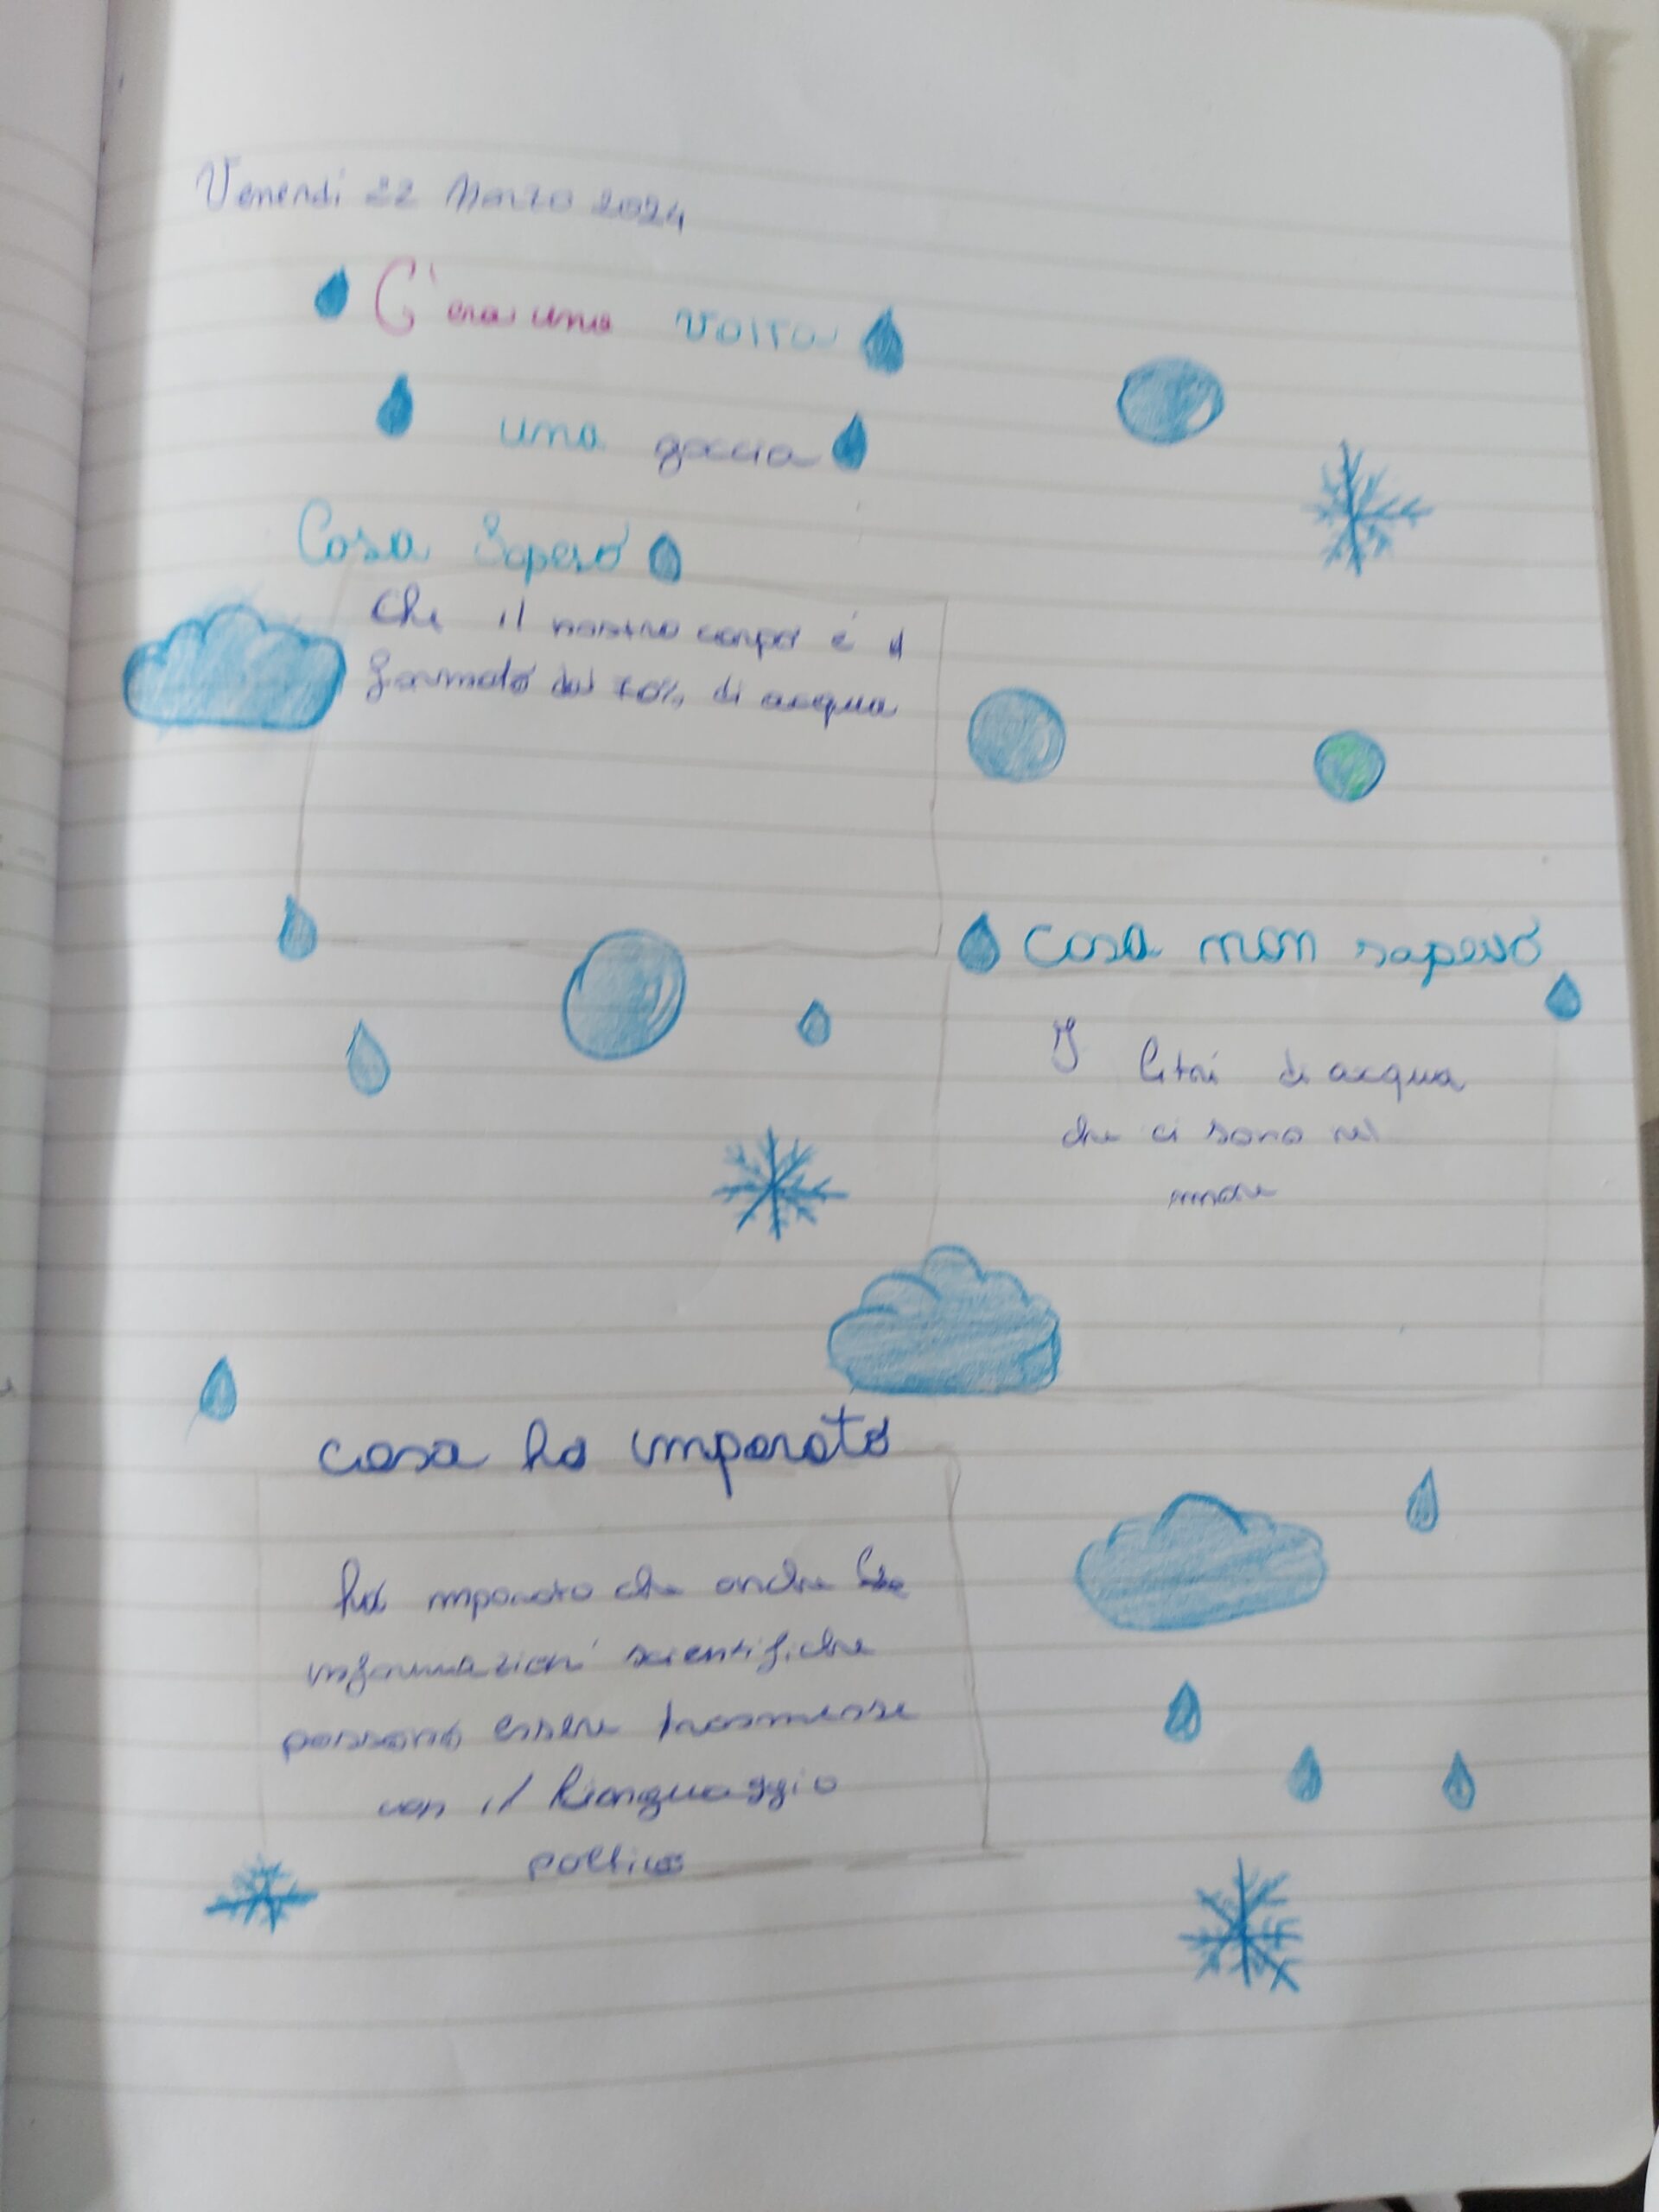 Venerdì 22 Marzo 2024
C'era una volta
una goccia
Cosa Sapevo
Che il nostro corpo è
formato dal 70% di acqua
cosa non sapevo
I litri di acqua
che ci sono nel
mare
cosa ho imparato
ho imparato che anche le
informazioni scientifiche
possono essere trasmesse
con il linguaggio
poetico